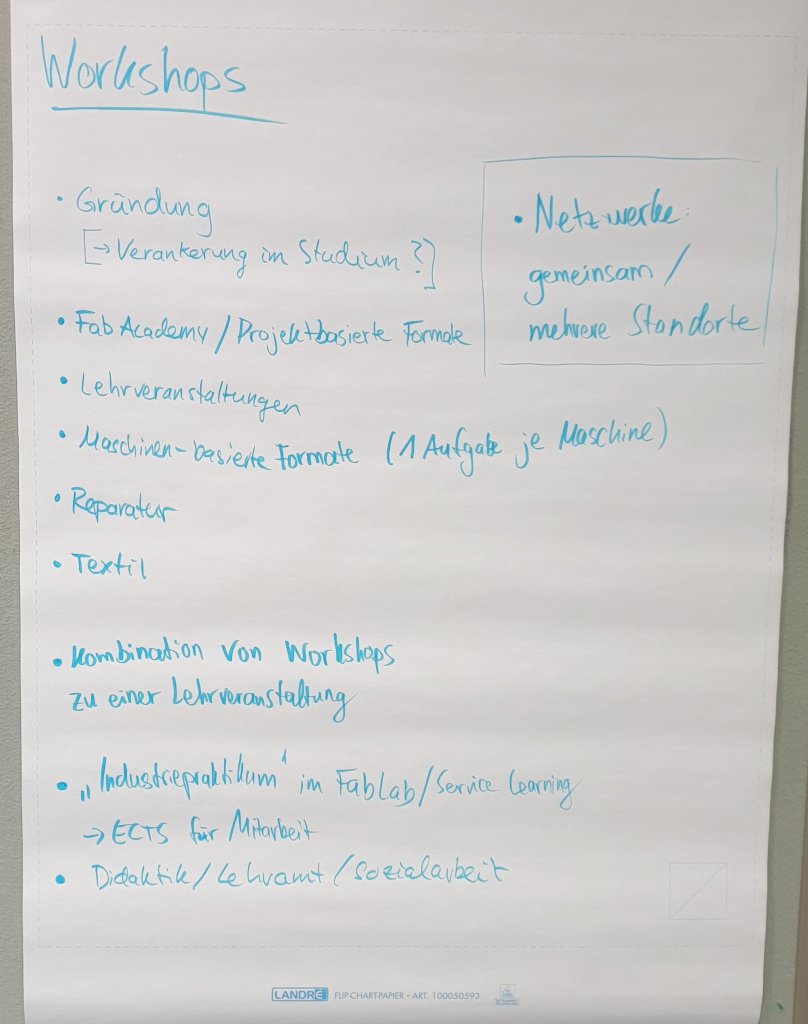 Workshops
• Gründung
[→ Verankerung im Studium?]
• Netzwerke:
gemeinsam /
mehrere Standorte
• Fab Academy / Projektbasierte Formate
• Lehrveranstaltungen
• Maschinen-basierte Formate (1 Aufgabe je Maschine)
• Reparatur
• Textil
• Kombination von Workshops
zu einer Lehrveranstaltung
• „Industriepraktikum" im FabLab / Service Learning
→ ECTS für Mitarbeit
• Didaktik / Lehramt / Sozialarbeit
LANDRÉ FLIP-CHART-PAPIER • ART. 100050593